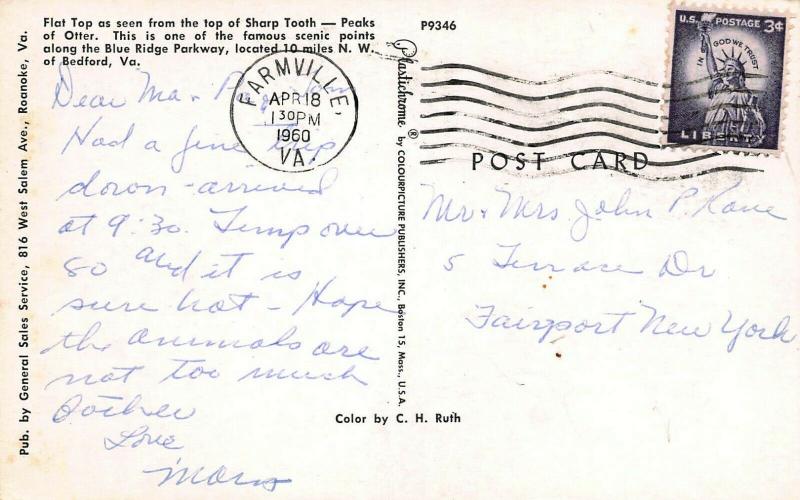 Flat Top as seen from the top of Sharp Tooth — Peaks
of Otter. This is one of the famous scenic points
along the Blue Ridge Parkway, located 10 miles N. W.
of Bedford, Va.
P9346
U.S. POSTAGE 3¢
IN GOD WE TRUST
LIBERTY
FARMVILLE,
APR 18
1 30 PM
1960
VA.
POST CARD
Dear Ma &
Had a fine trip
down - arrived
at 9:30. Temp over
80 and it is
sure hot - Hope
the animals are
not too much
bother
Love
Mr & Mrs John P. Kane
5 Terrace Dr
Fairport New York
Pub. by General Sales Service, 816 West Salem Ave., Roanoke, Va.
Plastichrome ® by COLOURPICTURE PUBLISHERS, INC., Boston 15, Mass., U.S.A.
Color by C. H. Ruth